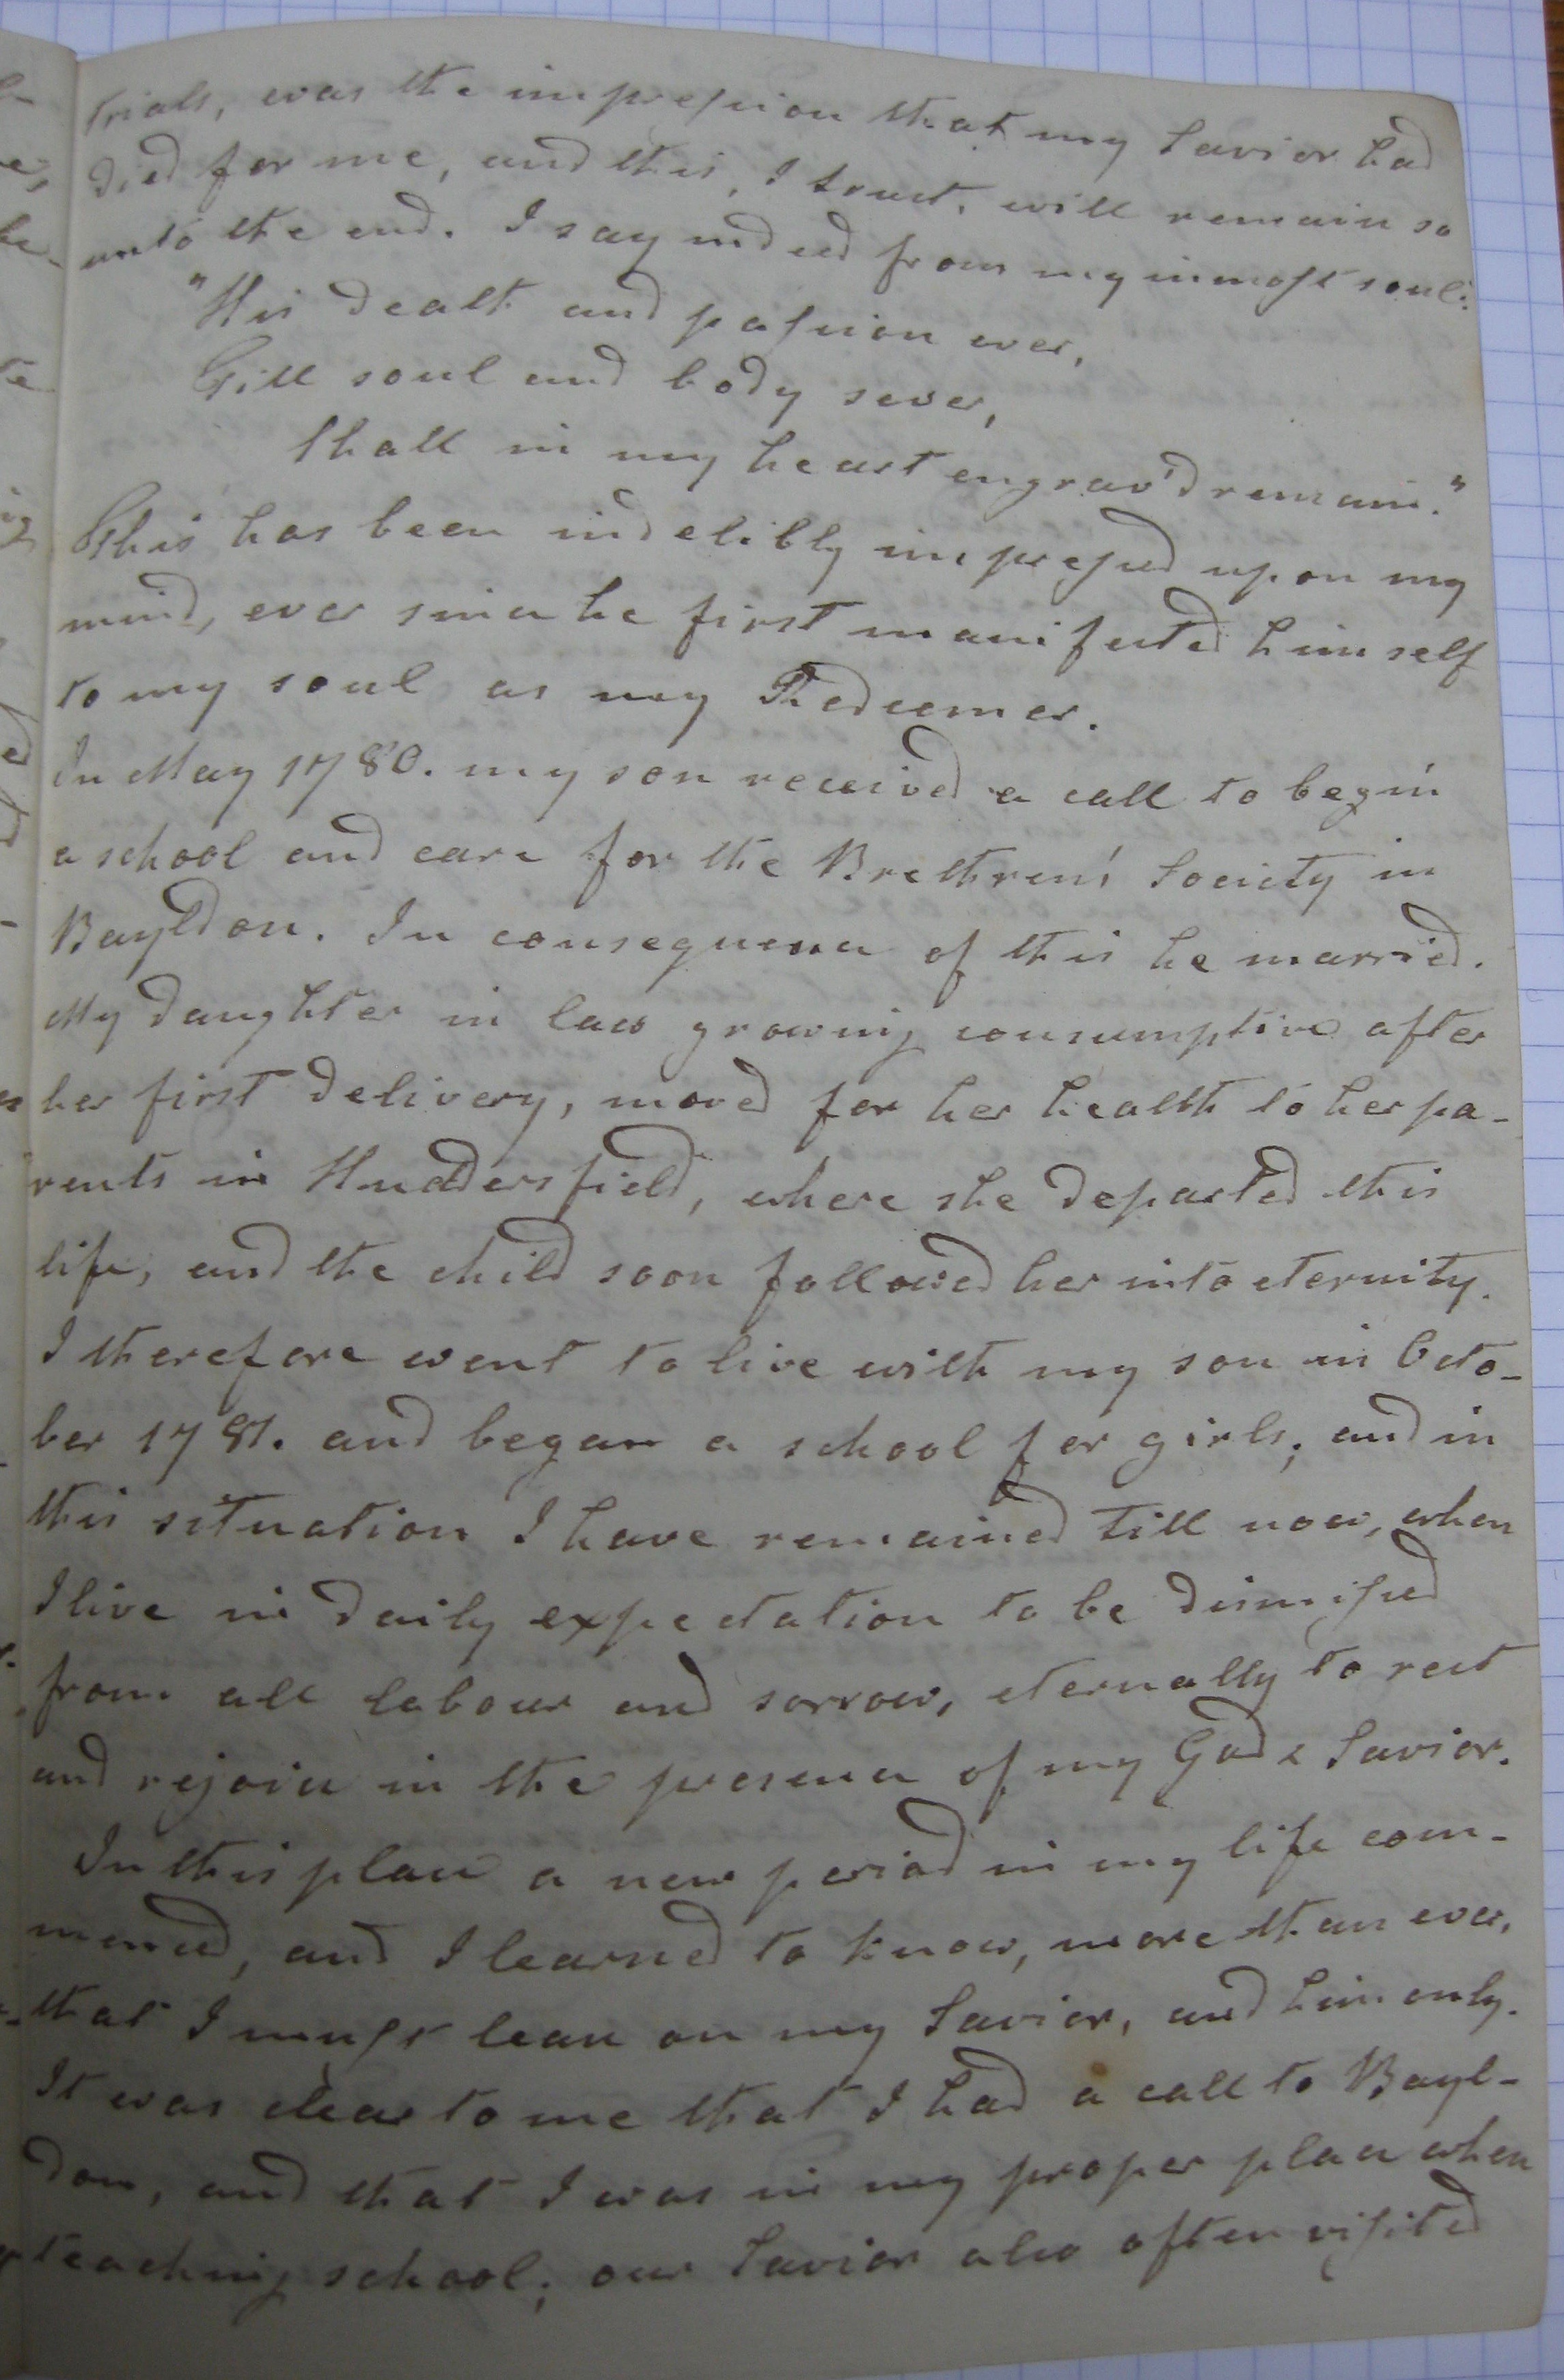 trials, was the impression that my Savior had
died for me, and this, I trust, will remain so
unto the end. I say indeed from my inmost soul:
"His death and passion ever,
Till soul and body sever,
Shall in my heart engrav'd remain."
This has been indelibly impressed upon my
mind, ever since he first manifested himself
to my soul as my Redeemer.
In May 1780. my son received a call to begin
a school and care for the Brethren's Society in
Bayldon. In consequence of this he married.
My daughter in law growing consumptive after
her first delivery, moved for her health to her pa-
rents in Huddersfield, where she departed this
life, and the child soon followed her into eternity.
I therefore went to live with my son in Octo-
ber 1781. and began a school for girls; and in
this situation I have remained till now, when
I live in daily expectation to be dismissed
from all labour and sorrow, eternally to rest
and rejoice in the presence of my God & Savior.
In this place a new period in my life com-
menced, and I learned to know, more than ever,
that I must lean on my Savior, and him only.
It was clear to me that I had a call to Bayl-
don, and that I was in my proper place when
teaching school; our Savior also often visited